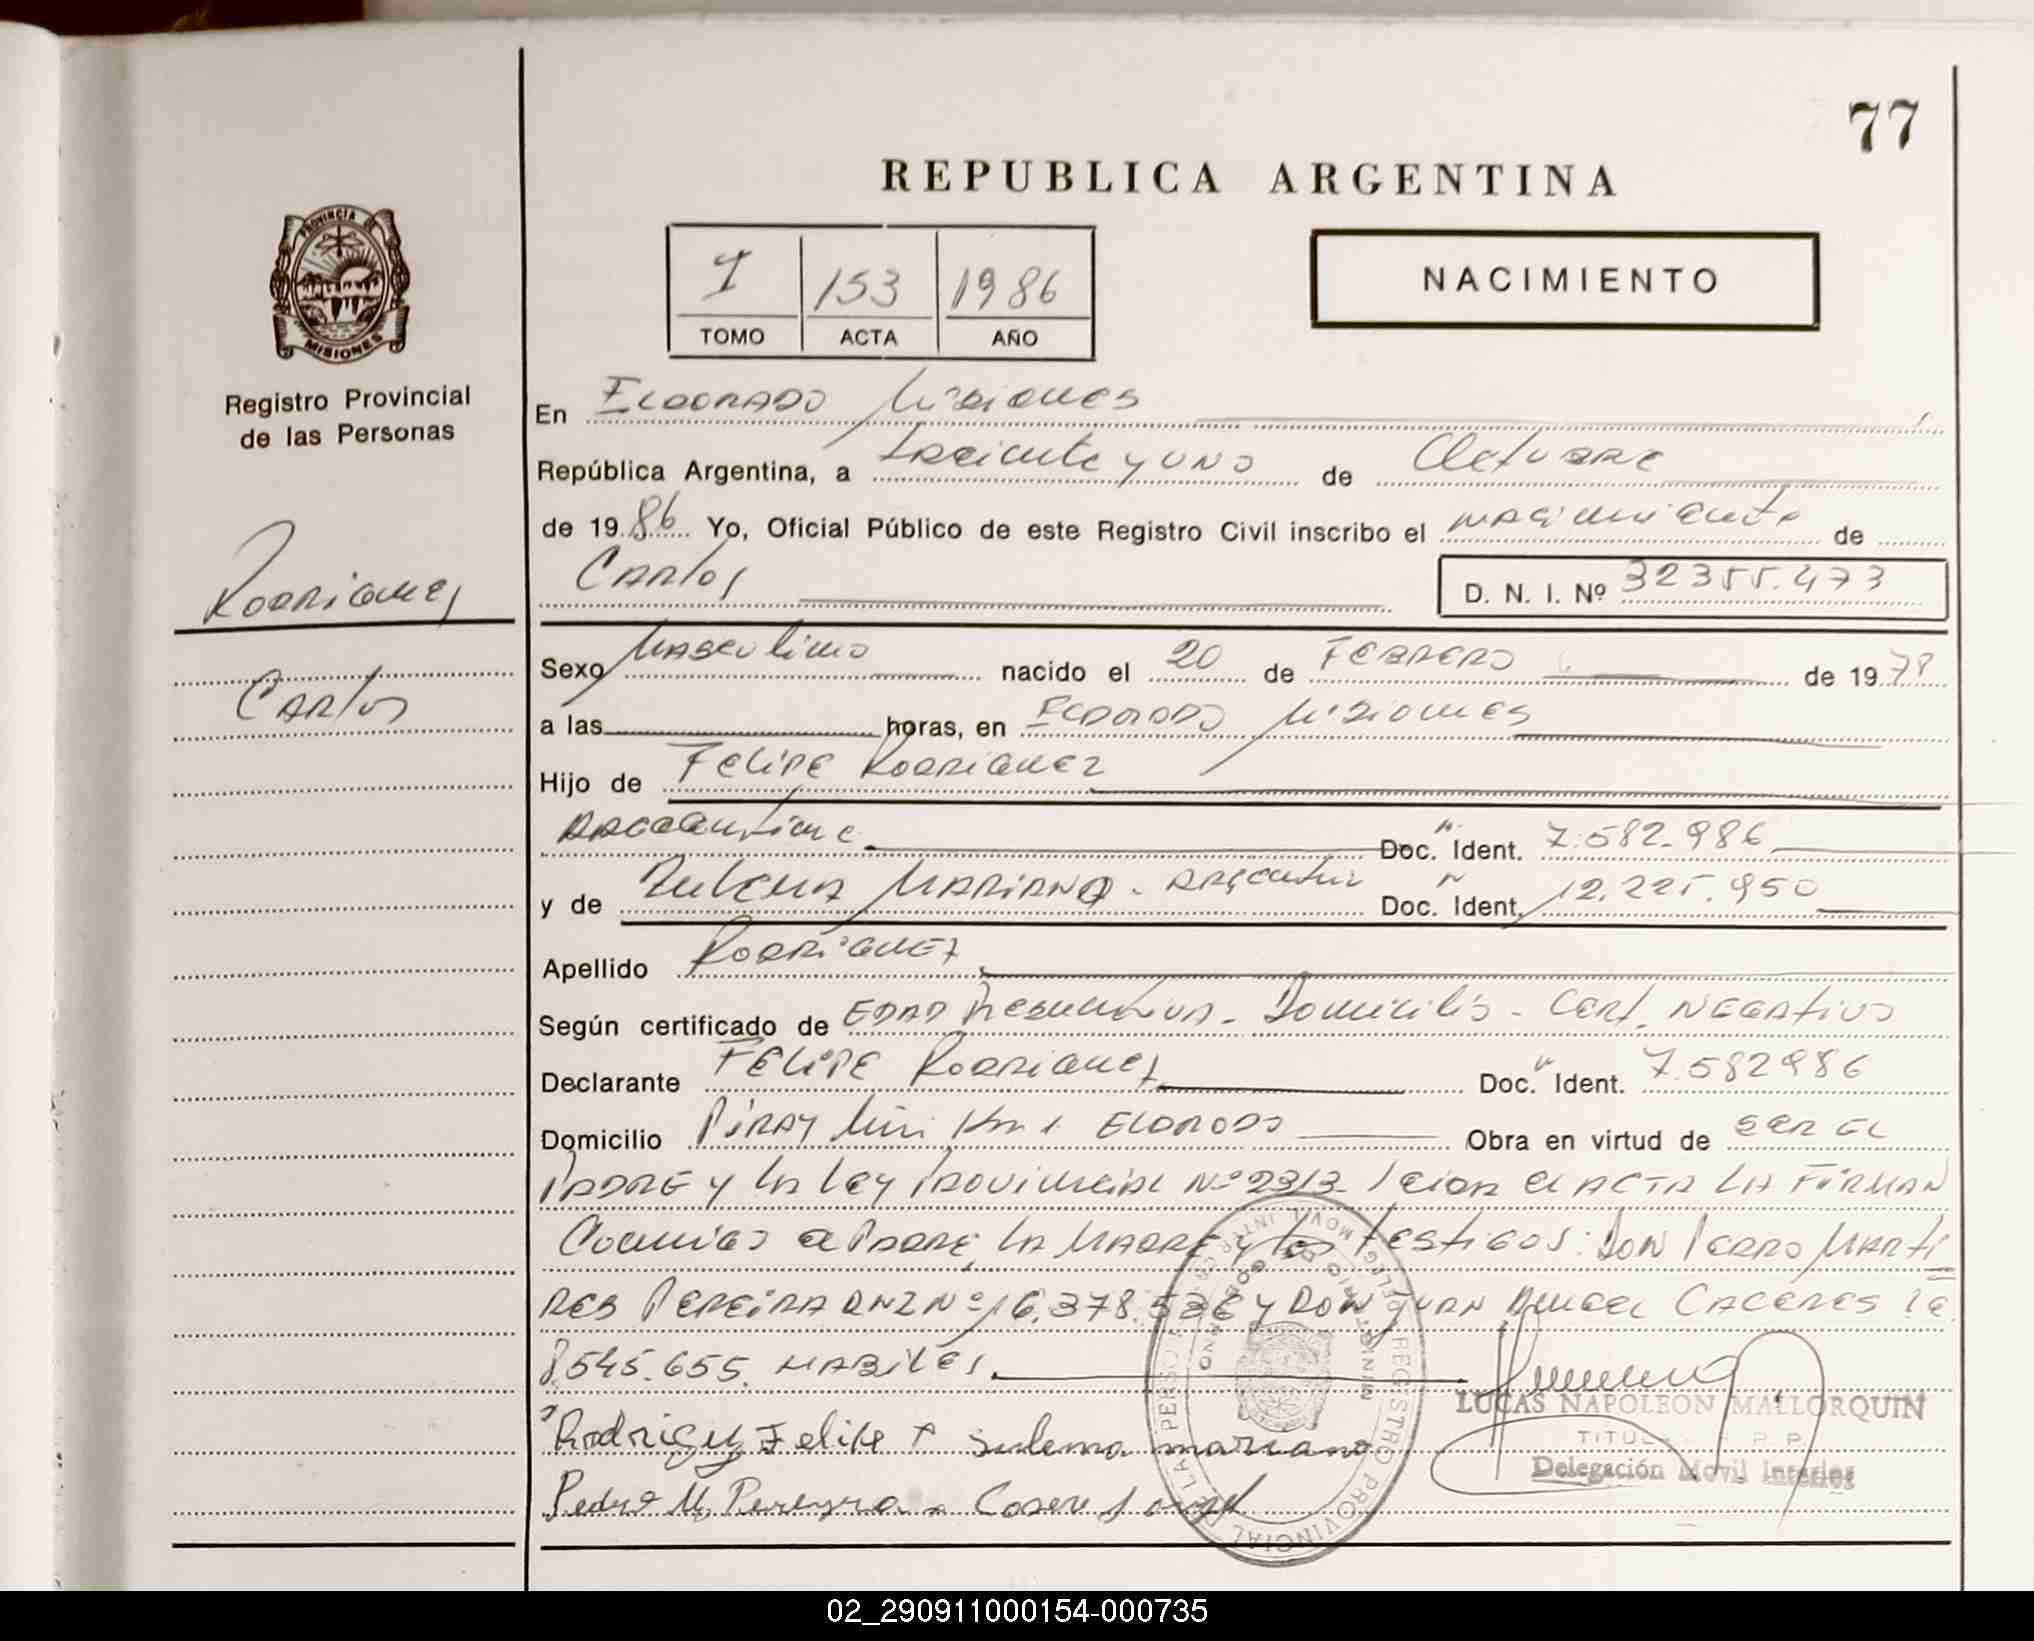 77
REPUBLICA ARGENTINA
PROVINCIA DE
MISIONES
Registro Provincial
de las Personas
I 153 1986
TOMO ACTA AÑO
NACIMIENTO
En Eldorado Misiones
República Argentina, a treinta y uno de Octubre
de 1986 Yo, Oficial Público de este Registro Civil inscribo el nacimiento de
Rodriguez
Carlos
D. N. I. Nº 32355.473
Carlos
Sexo Masculino nacido el 20 de Febrero de 1978
a las horas, en Eldorado Misiones
Hijo de Felipe Rodriguez
Argentino Doc. Ident. 7.582.986
y de Zulema Mariano - Argentina Doc. Ident. 12.225.950
Apellido Rodriguez
Según certificado de Edad Presuntiva - Domicilio - Cert. Negativo
Declarante Felipe Rodriguez Doc. Ident. 7.582986
Domicilio Piray Mini Km 1 Eldorado Obra en virtud de ser el
Padre y la Ley Provincial Nº 2313 leida el acta la firman
Conmigo el Padre, la Madre y los testigos: Don Pedro Marti
res Pereira DNI Nº 16.378.536 y Don Juan Angel Caceres le
8545.655. Habiles.
LUCAS NAPOLEON MALLORQUIN
Rodriguez Felipe + sulema mariano
Delegación Movil Interior
Pedro M. Pereyra
REGISTRO PROVINCIAL DE LAS PERSONAS
02_290911000154-000735